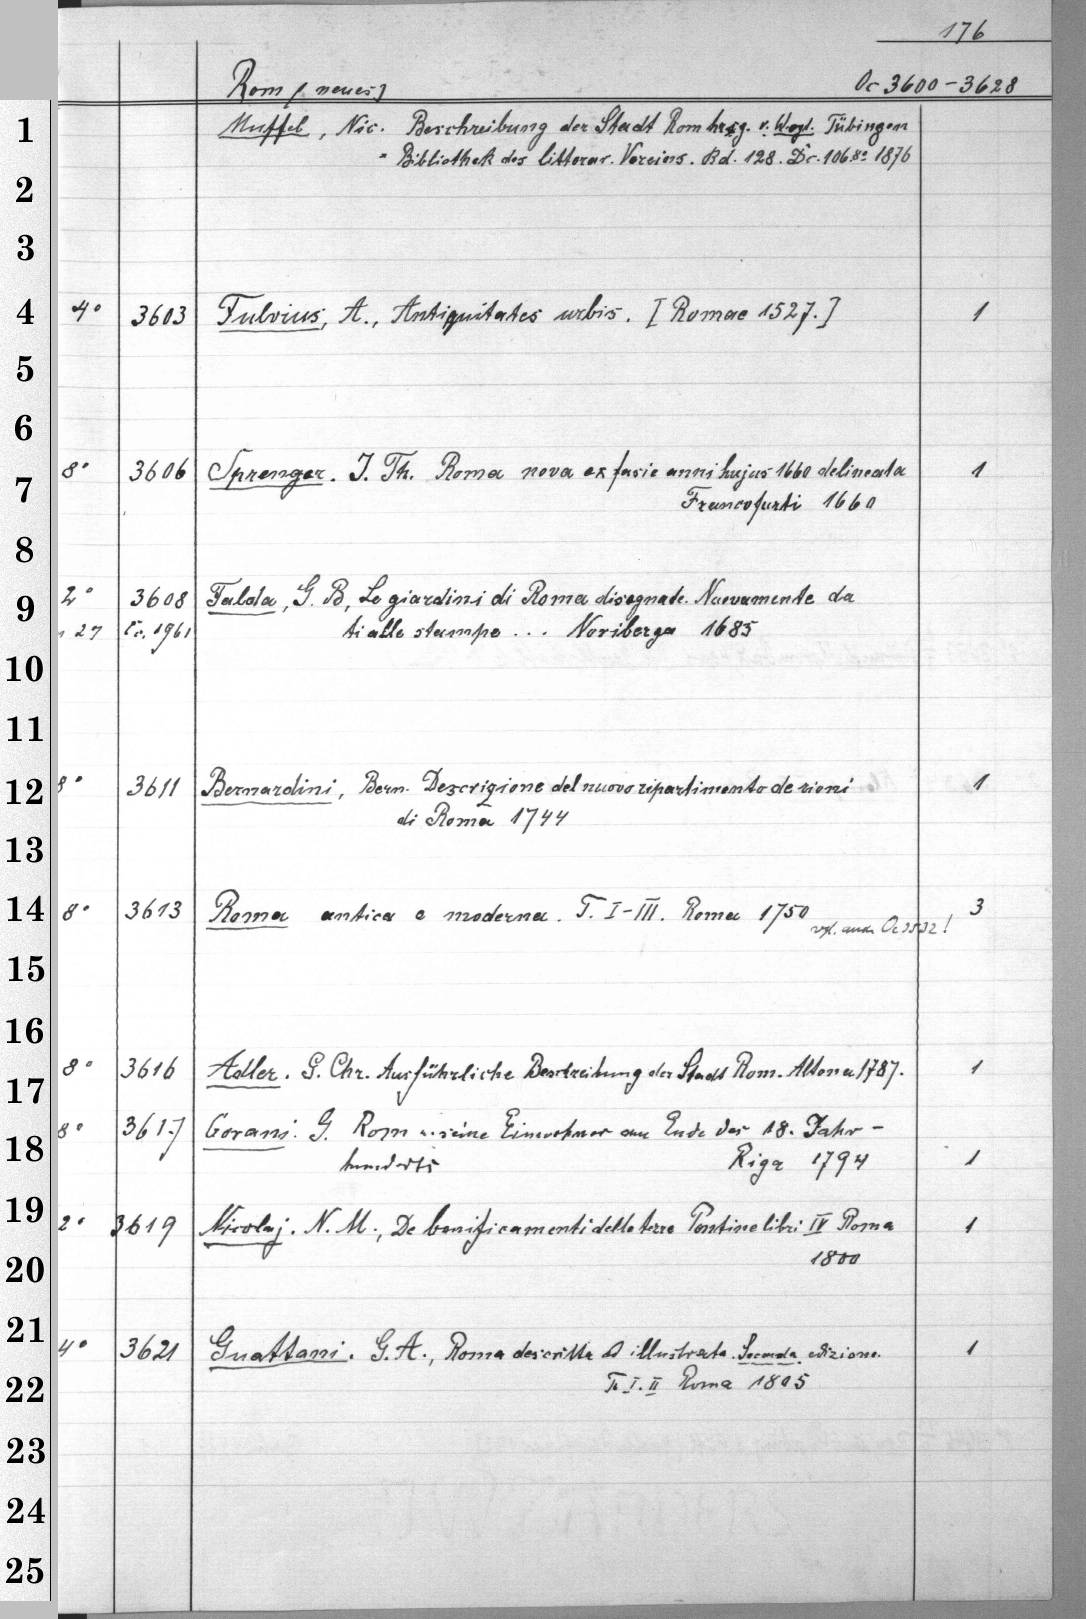 176
Rom (neues) Oc 3600-3628
1 Muffel, Nic. Beschreibung der Stadt Rom hrsg. v. Vogt. Tübingen
= Bibliothek des litterar. Vereins. Bd. 128. Dc. 106 8° 1876
2
3
4 4° 3603 Fulvius, A., Antiquitates urbis. [Romae 1527.] 1
5
6
7 8° 3606 Sprenger. J. Th. Roma nova ex facie anni hujus 1660 delineata 1
Francofurti 1660
8
9 2° 3608 Falda, G. B, Le giardini di Roma disegnate. Nuevamente da
27 1961 ti alle stampe ... Noriberga 1685
10
11
12 8° 3611 Bernardini, Bern. Descrizione del nuovo ripartimento de rioni 1
di Roma 1744
13
14 8° 3613 Roma antica e moderna. T. I-III. Roma 1750 3
vgl. auch Oc !
15
16
17 8° 3616 Adler. G. Chr. Ausführliche Beschreibung der Stadt Rom. Altona 1787. 1
18 8° 3617 Gorani. G. Rom u. seine Einwohner am Ende des 18. Jahr-
hunderts Riga 1794 1
19 2° 3619 Nicolaj. N. M., De bonificamenti delle terre Pontine libri IV Roma 1
20 1800
21 4° 3621 Guattani. G. A., Roma descritta ed illustrata. Seconda edizione. 1
22 T. I. II Roma 1805
23
24
25